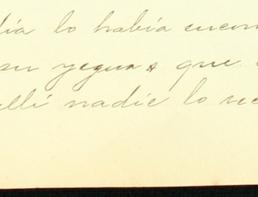 día lo había encon
su yegua que
allí nadie lo ve